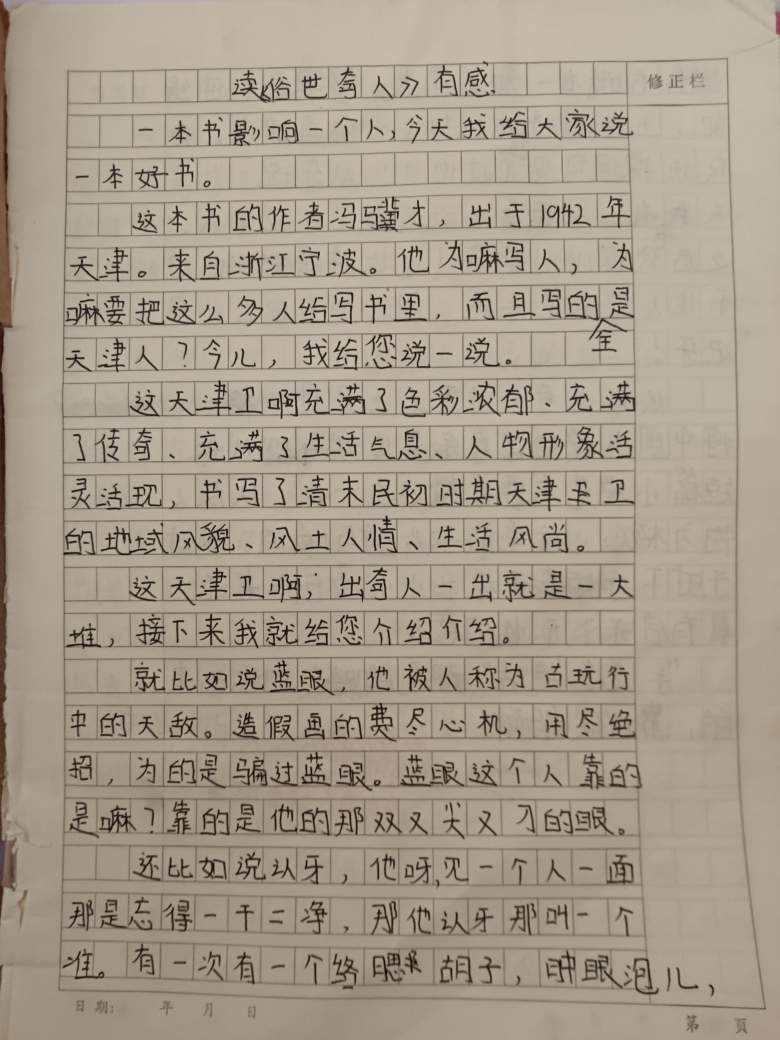 读《俗世奇人》有感
修正栏
一本书影响一个人,今天我给大家说
一本好书。
这本书的作者冯骥才，出于1942年
天津。来自浙江宁波。他为嘛写人，为
嘛要把这么多人给写书里，而且写的是
全
天津人？今儿，我给您说一说。
这天津卫啊充满了色彩浓郁、充满
了传奇、充满了生活气息、人物形象活
灵活现，书写了清末民初时期天津卫
的地域风貌、风土人情、生活风尚。
这天津卫啊，出奇人一出就是一大
堆，接下来我就给您介绍介绍。
就比如说蓝眼，他被人称为古玩行
中的天敌。造假画的费尽心机，用尽绝
招，为的是骗过蓝眼。蓝眼这个人靠的
是嘛？靠的是他的那双又尖又刁的眼。
还比如说认牙，他呀,见一个人一面
那是忘得一干二净，那他认牙那叫一个
准。有一次有一个络腮胡子，肿眼泡儿，
日期: 年 月 日
第 页